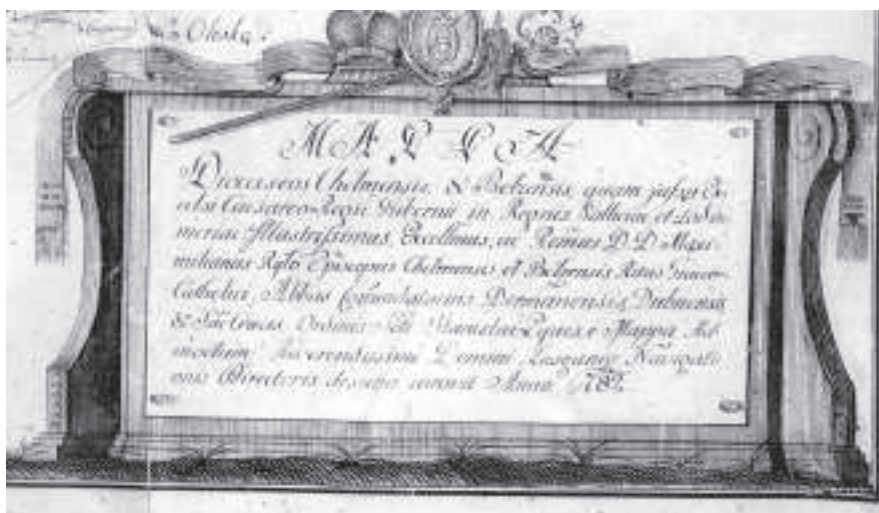 Oleska
MAPPA
Dioeceseos Chelmensis & Belzensis, quam jussu Ex-
celsi Caesareo-Regii Gubernii in Regnis Galliciae et Lodo-
meriae Illustrissimus, Excellmus, ac Rdmus D. D. Maxi-
milianus Ryło Episcopus Chelmensis et Belzensis Ritus Graeco-
Catholici, Abbas Commendatarius Dermanensis, Dubnensis
& Ordinis Sti Stanislai Eques e Mappa Ad-
modum Reverendissimi Domini Navigati-
onis Directoris desumi curavit Anno 1782